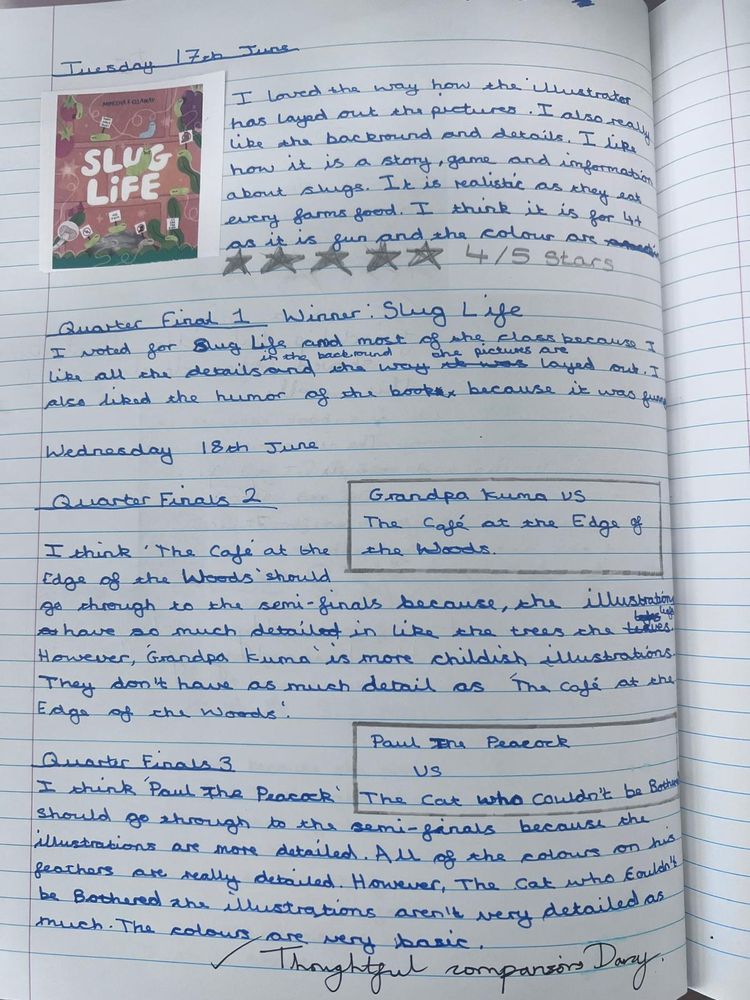 Tuesday 17th June
SLUG
LIFE
I loved the way how the illustrater
has layed out the pictures. I also really
like the backround and details. I like
how it is a story, game and imformation
about slugs. It is realistic as they eat
every farms food. I think it is for 4+
as it is fun and the colour are
4/5 stars
Quarter Final 1 Winner: Slug Life
I voted for Slug Life and most of the class because I
in the background the pictures are
like all the details and the way it was layed out. I
also liked the humor of the book because it was funny
Wednesday 18th June
Quarter Finals 2
Grandpa Kuma VS
The Café at the Edge of
the Woods.
I think 'The Café at the
Edge of the Woods' should
go through to the semi-finals because, the illustrations
have so much detailed in like the trees the
However, 'Grandpa Kuma' is more childish illustrations.
They don't have as much detail as 'The Café at the
Edge of the Woods'.
Quarter Finals 3
Paul The Peacock
VS
The Cat who Couldn't be Bothered
I think 'Paul The Peacock'
should go through to the semi-finals because the
illustrations are more detailed. All of the colours on his
feathers are really detailed. However, The Cat who Couldn't
be Bothered the illustrations aren't very detailed as
much. The colours are very basic.
Thoughtful comparisions Darcy.